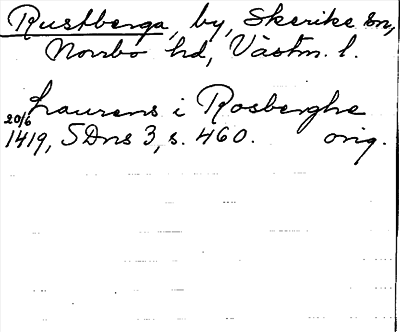 Rustberga, by, Skerike sn,
Norrbo hd, Västm. l.
Laurens i Rosberghe
20/6
1419, SDns 3, s. 460. orig.